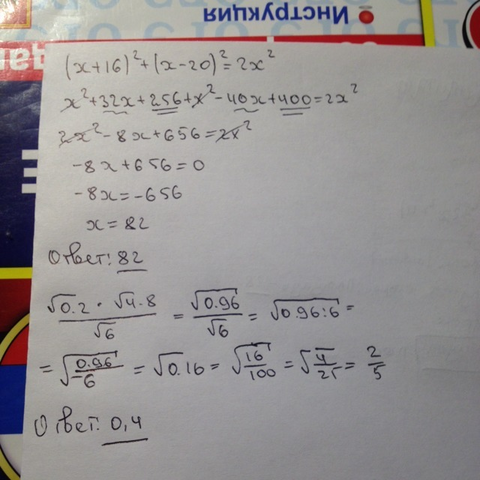 Инструкция
(x+16)²+(x-20)²=2x²
x²+32x+256+x²-40x+400=2x²
2x²-8x+656=2x²
-8x+656=0
-8x=-656
x=82
Ответ: 82
√0.2 · √4.8 / √6 = √0.96 / √6 = √0.96:6 =
= √0.96/6 = √0.16 = √16/100 = √4/25 = 2/5
Ответ: 0,4